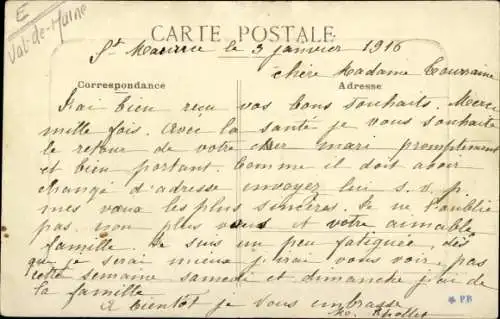 E
Val-de-Marne
CARTE POSTALE
St Maurice le 3 janvier 1916
chère Madame Tourraine
Correspondance
Adresse
J'ai bien reçu vos bons souhaits. Merci
mille fois. Avec la santé je vous souhaite
le retour de votre cher mari promptement
et bien portant. Comme il doit avoir
changé d'adresse envoyez lui s. v. p.
mes vœux les plus sincères. Je ne l'oublie
pas non plus vous et votre aimable
famille. Je suis un peu fatiguée, dès
que je serai mieux j'irai vous voir, pas
cette semaine samedi et dimanche j'ai de
la famille
A bientôt je vous embrasse
PB